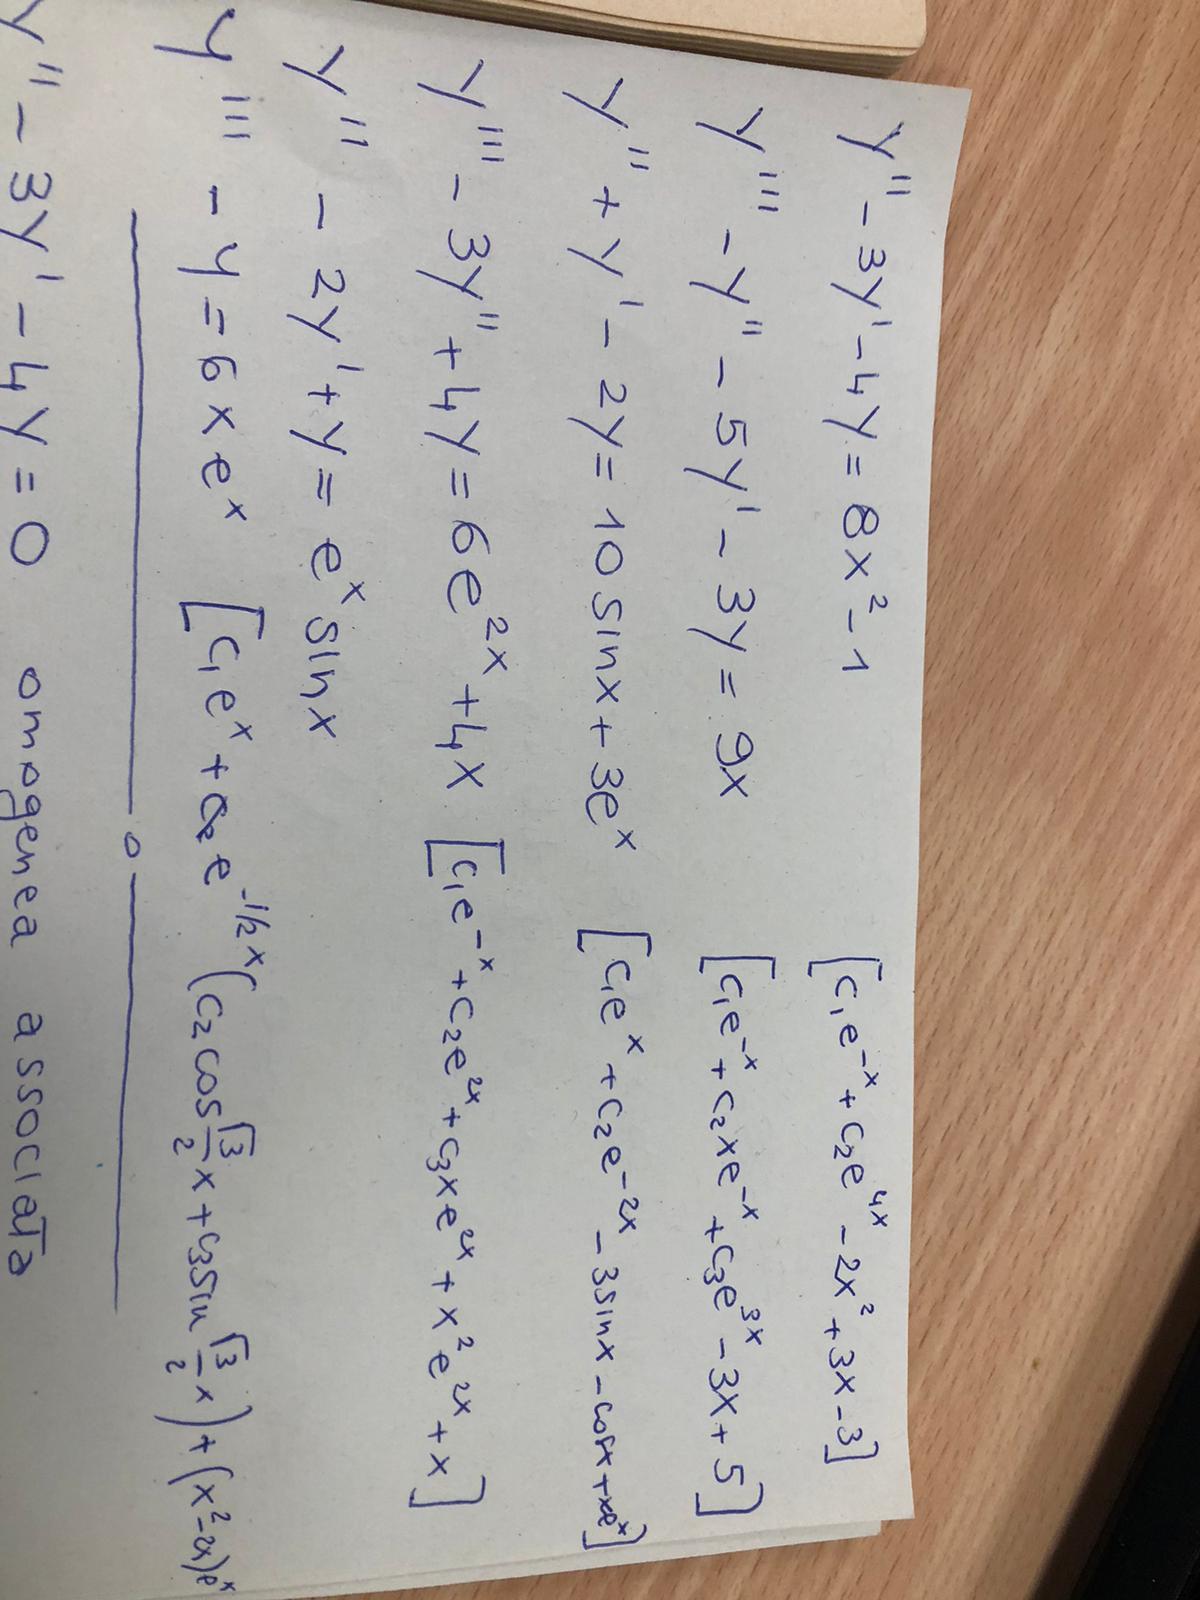 y'' - 3y' - 4y = 8x² - 1 [c₁e⁻ˣ + c₂e⁴ˣ - 2x² + 3x - 3]
y''' - y'' - 5y' - 3y = 9x [c₁e⁻ˣ + c₂xe⁻ˣ + c₃e³ˣ - 3x + 5]
y'' + y' - 2y = 10 sinx + 3eˣ [c₁eˣ + c₂e⁻²ˣ - 3sinx - cosx + xeˣ]
y''' - 3y'' + 4y = 6e²ˣ + 4x [c₁e⁻ˣ + c₂e²ˣ + c₃xe²ˣ + x²e²ˣ + x]
y'' - 2y' + y = eˣ sinx
y''' - y = 6xeˣ [c₁eˣ + e^(-1/2 x) (c₂cos √3/2 x + c₃sin √3/2 x) + (x² - 2x)eˣ
y'' - 3y' - 4y = 0 omogenea associata